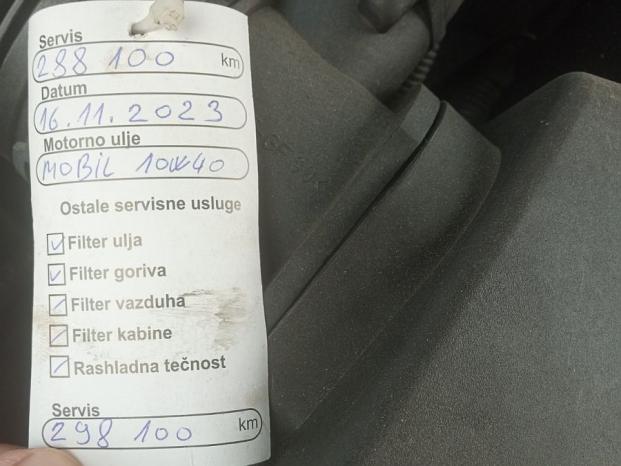 Servis
288 100 km
Datum
16.11.2023
Motorno ulje
MOBIL 10W40
Ostale servisne usluge
Filter ulja
Filter goriva
Filter vazduha
Filter kabine
Rashladna tečnost
Servis
298 100 km